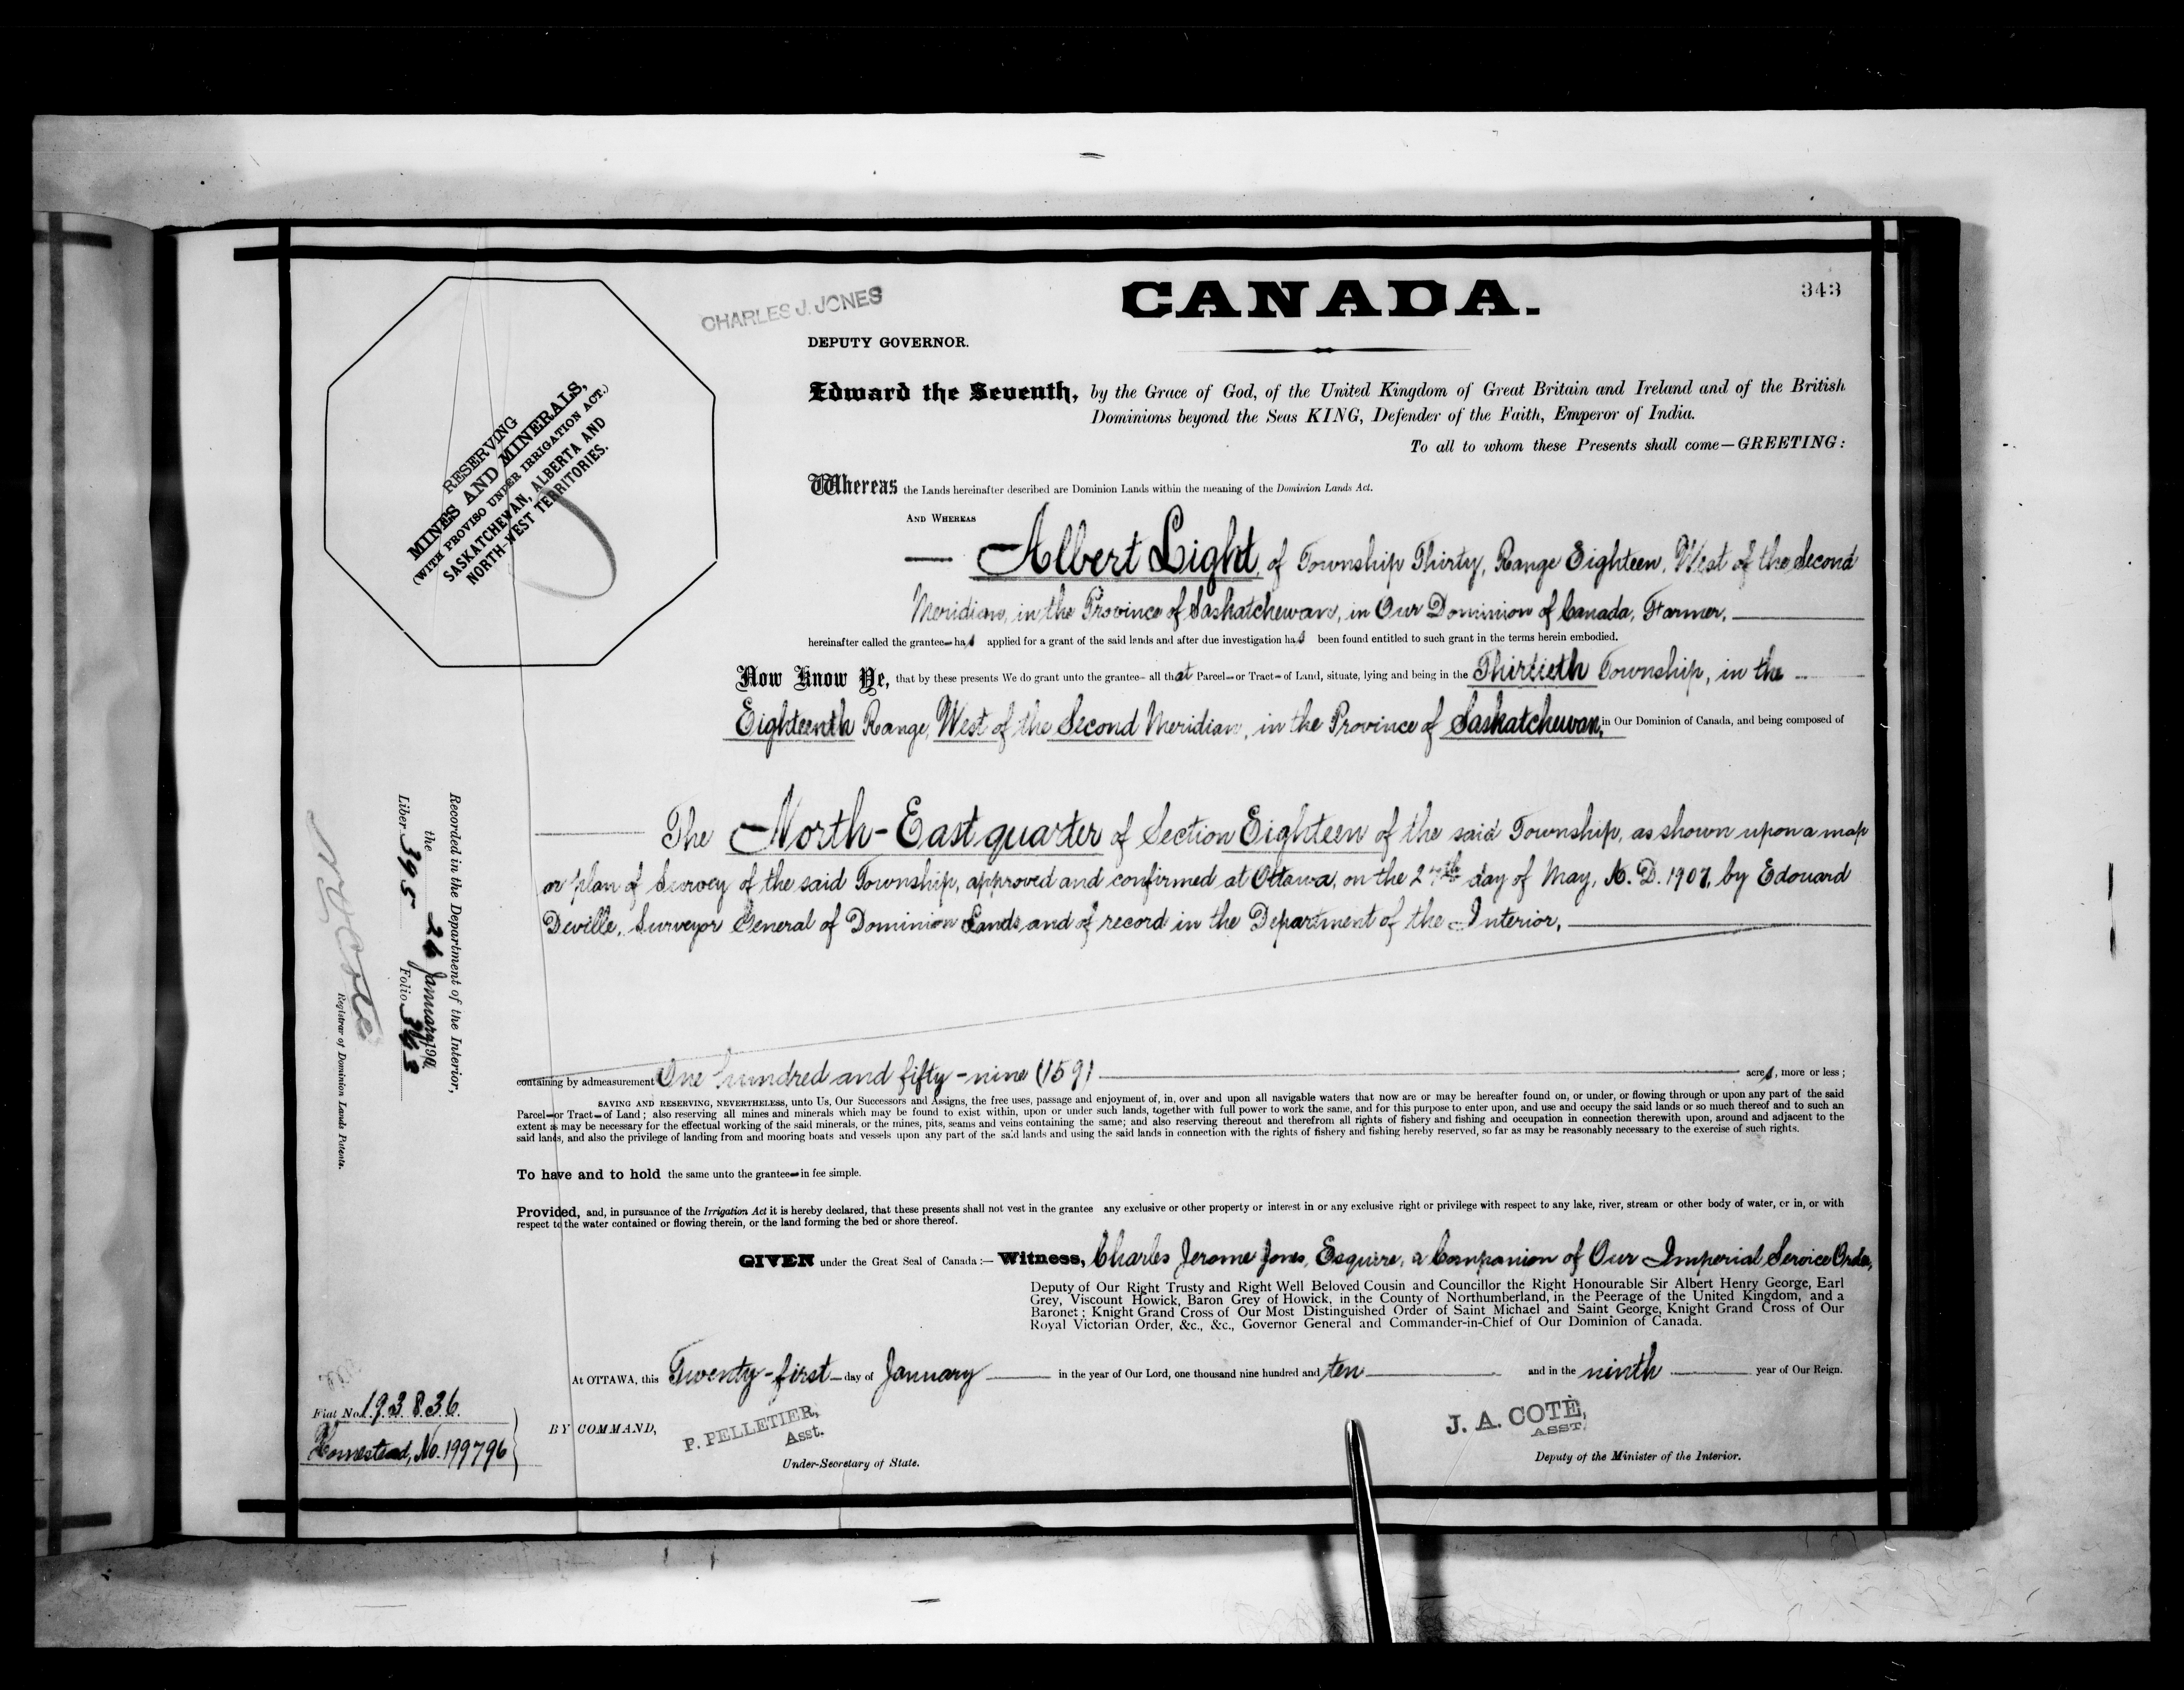 343
CHARLES J. JONES
CANADA.
DEPUTY GOVERNOR.
RESERVING
MINES AND MINERALS,
(WITH PROVISO UNDER IRRIGATION ACT.)
SASKATCHEWAN, ALBERTA AND
NORTH-WEST TERRITORIES.
Edward the Seventh, by the Grace of God, of the United Kingdom of Great Britain and Ireland and of the British
Dominions beyond the Seas KING, Defender of the Faith, Emperor of India.
To all to whom these Presents shall come—GREETING:
Whereas the Lands hereinafter described are Dominion Lands within the meaning of the Dominion Lands Act.
AND WHEREAS
Albert Light, of Township Thirty, Range Eighteen, West of the Second
Meridian, in the Province of Saskatchewan, in Our Dominion of Canada, Farmer,
hereinafter called the grantee has applied for a grant of the said lands and after due investigation has been found entitled to such grant in the terms herein embodied.
Now Know Ye, that by these presents We do grant unto the grantee all that Parcel or Tract of Land, situate, lying and being in the Thirtieth Township, in the
Eighteenth Range, West of the Second Meridian, in the Province of Saskatchewan, in Our Dominion of Canada, and being composed of
The North-East quarter of Section Eighteen of the said Township, as shown upon a map
or plan of Survey of the said Township, approved and confirmed at Ottawa, on the 27th day of May, A.D. 1907, by Edouard
Deville, Surveyor General of Dominion Lands, and of record in the Department of the Interior,
containing by admeasurement One hundred and fifty-nine (159) acres, more or less;
SAVING AND RESERVING, NEVERTHELESS, unto Us, Our Successors and Assigns, the free uses, passage and enjoyment of, in, over and upon all navigable waters that now are or may be hereafter found on, or under, or flowing through or upon any part of the said
Parcel or Tract of Land; also reserving all mines and minerals which may be found to exist within, upon or under such lands, together with full power to work the same, and for this purpose to enter upon, and use and occupy the said lands or so much thereof and to such an
extent as may be necessary for the effectual working of the said minerals, or the mines, pits, seams and veins containing the same; and also reserving thereout and therefrom all rights of fishery and fishing and occupation in connection therewith upon, around and adjacent to the
said lands, and also the privilege of landing from and mooring boats and vessels upon any part of the said lands and using the said lands in connection with the rights of fishery and fishing hereby reserved, so far as may be reasonably necessary to the exercise of such rights.
To have and to hold the same unto the grantee in fee simple.
Provided, and, in pursuance of the Irrigation Act it is hereby declared, that these presents shall not vest in the grantee any exclusive or other property or interest in or any exclusive right or privilege with respect to any lake, river, stream or other body of water, or in, or with
respect to the water contained or flowing therein, or the land forming the bed or shore thereof.
GIVEN under the Great Seal of Canada:—Witness, Charles Jerome Jones, Esquire, a Companion of Our Imperial Service Order,
Deputy of Our Right Trusty and Right Well Beloved Cousin and Councillor the Right Honourable Sir Albert Henry George, Earl
Grey, Viscount Howick, Baron Grey of Howick, in the County of Northumberland, in the Peerage of the United Kingdom, and a
Baronet; Knight Grand Cross of Our Most Distinguished Order of Saint Michael and Saint George, Knight Grand Cross of Our
Royal Victorian Order, &c., &c., Governor General and Commander-in-Chief of Our Dominion of Canada.
At OTTAWA, this Twenty-first day of January in the year of Our Lord, one thousand nine hundred and ten and in the ninth year of Our Reign.
BY COMMAND,
P. PELLETIER,
Asst.
Under-Secretary of State.
J. A. COTÉ,
ASST.
Deputy of the Minister of the Interior.
Recorded in the Department of the Interior,
the 26 January 190
Liber 395 Folio 343
N O Coté
Registrar of Dominion Lands Patents.
Fiat No. 193836.
Homestead, No. 199796